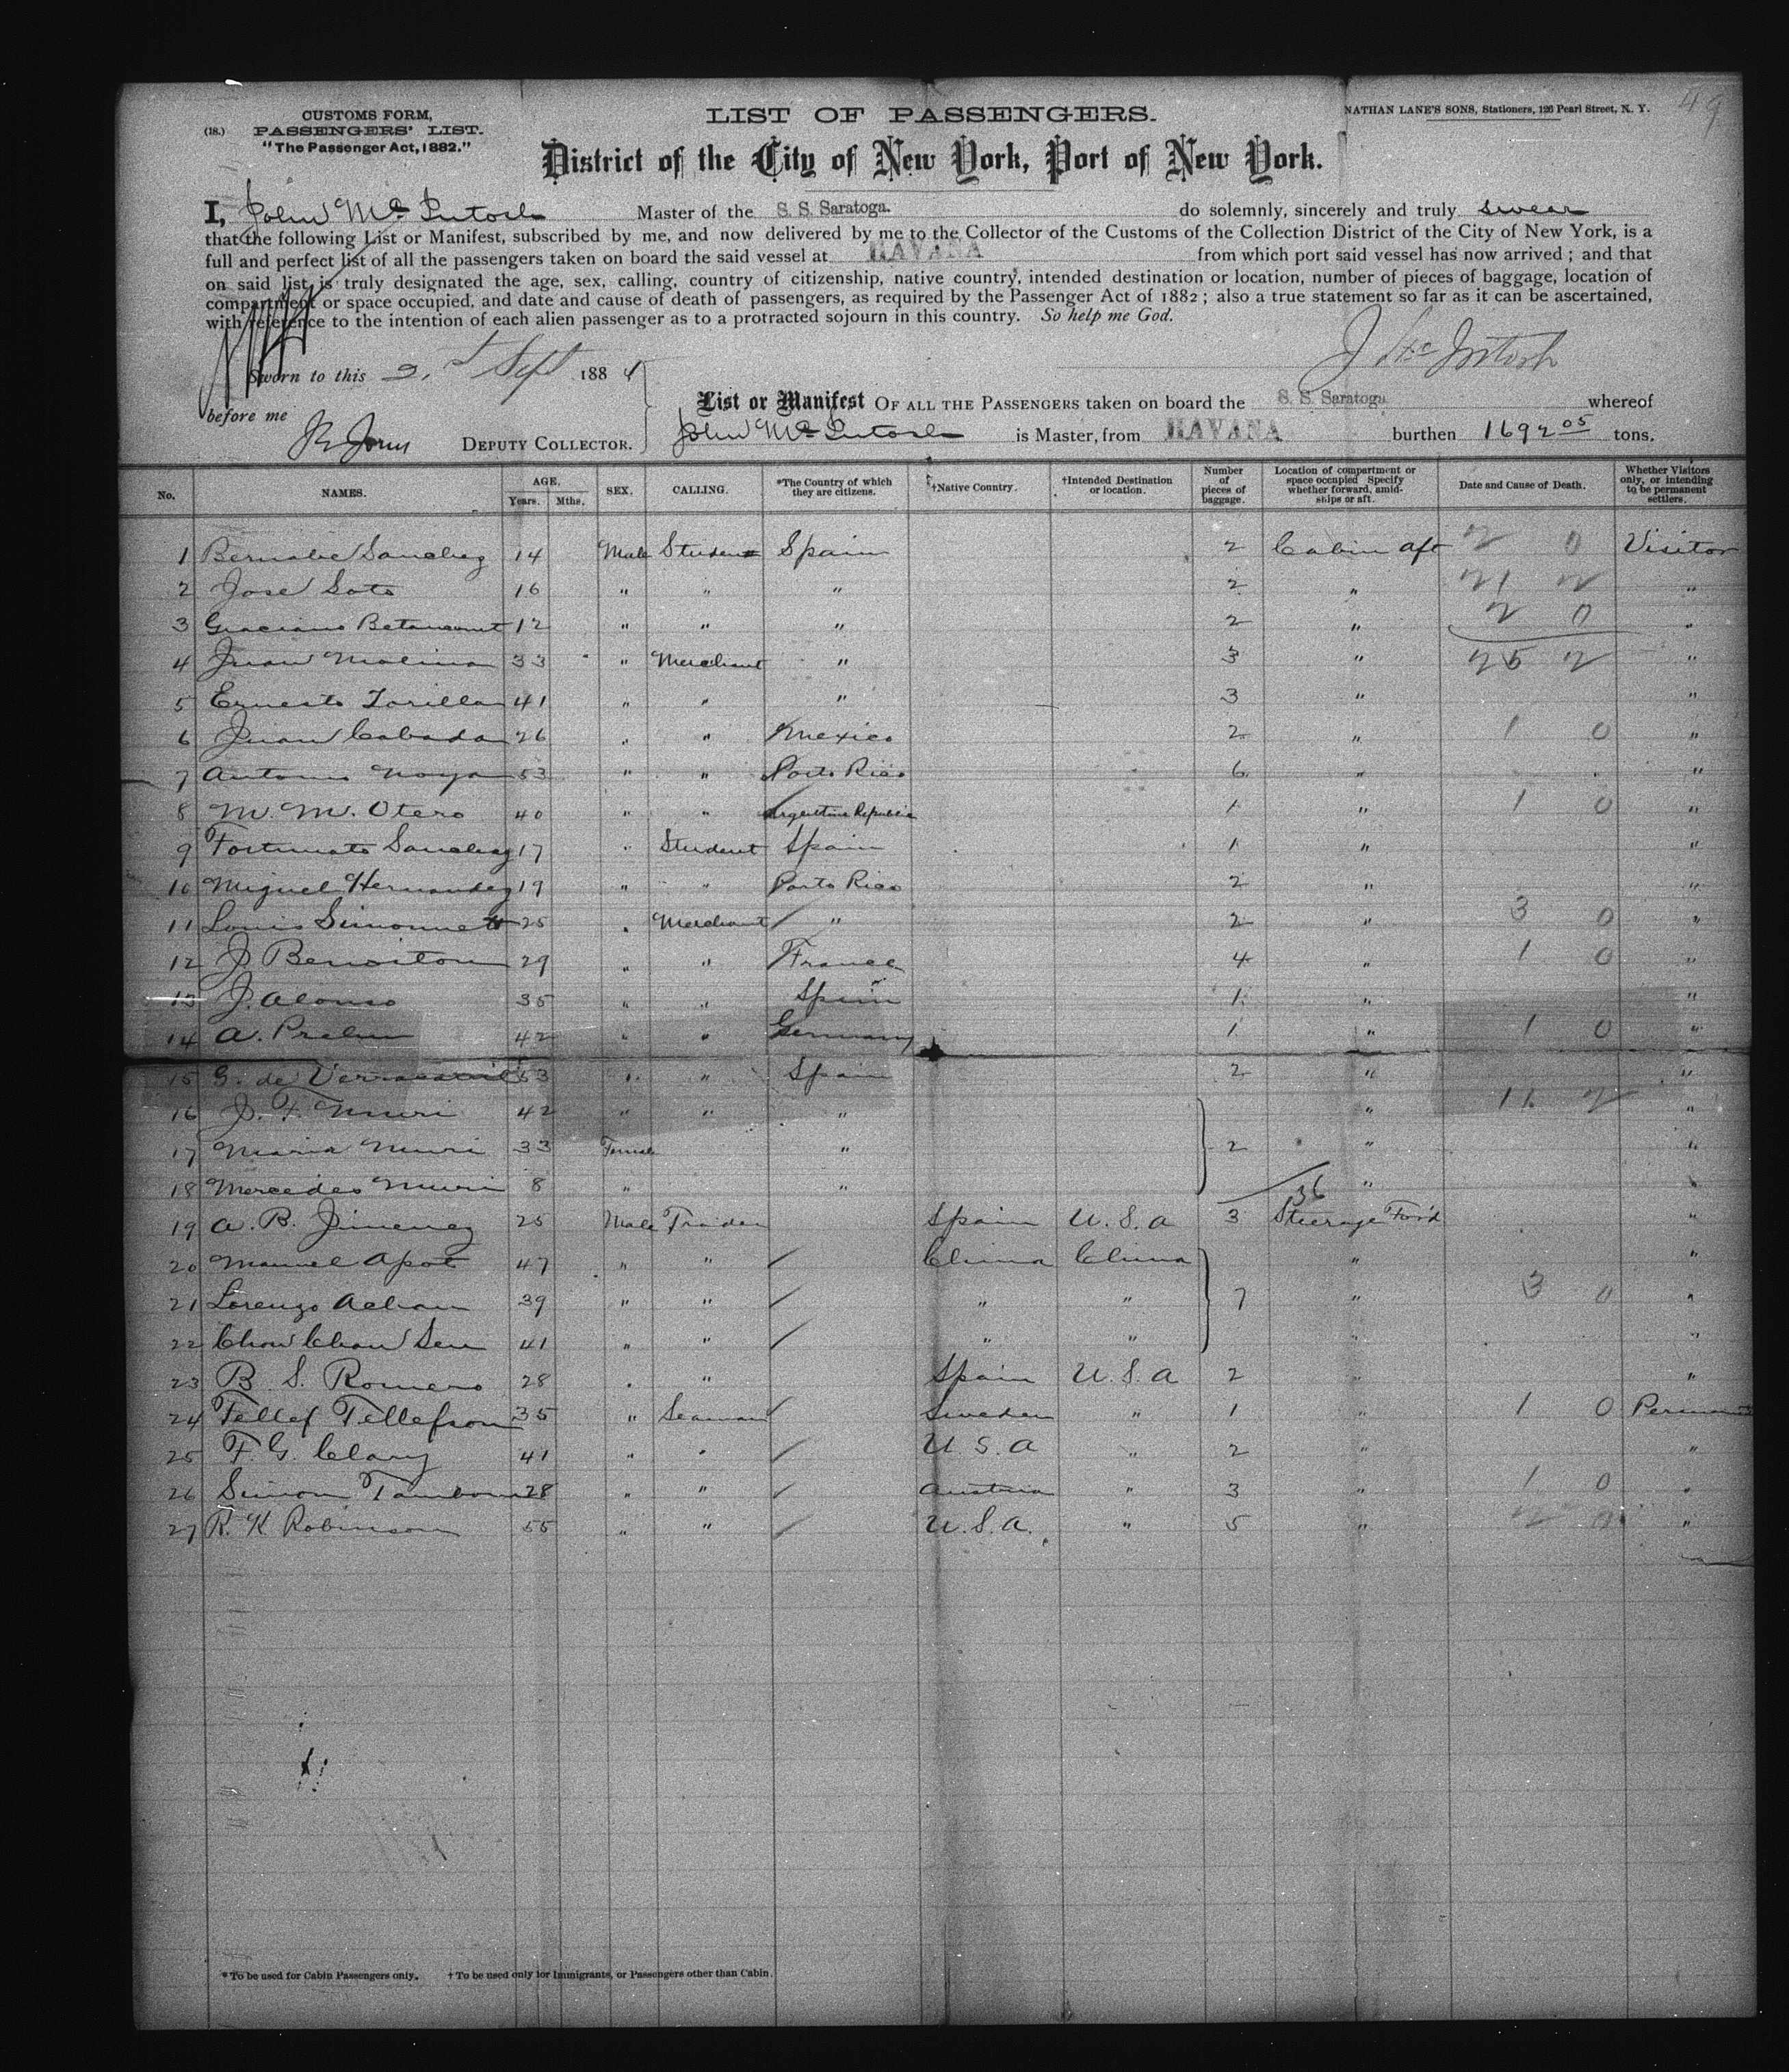 49
CUSTOMS FORM,
(18.) PASSENGERS' LIST.
"The Passenger Act, 1882."
LIST OF PASSENGERS.
NATHAN LANE'S SONS, Stationers, 126 Pearl Street, N. Y.
District of the City of New York, Port of New York.
I, John Mc Intosh Master of the S. S. Saratoga. do solemnly, sincerely and truly swear
that the following List or Manifest, subscribed by me, and now delivered by me to the Collector of the Customs of the Collection District of the City of New York, is a
full and perfect list of all the passengers taken on board the said vessel at HAVANA from which port said vessel has now arrived ; and that
on said list is truly designated the age, sex, calling, country of citizenship, native country, intended destination or location, number of pieces of baggage, location of
compartment or space occupied, and date and cause of death of passengers, as required by the Passenger Act of 1882 ; also a true statement so far as it can be ascertained,
with reference to the intention of each alien passenger as to a protracted sojourn in this country. So help me God.
J Mc Intosh
Sworn to this Sept 1884
before me
DEPUTY COLLECTOR.
List or Manifest OF ALL THE PASSENGERS taken on board the S. S. Saratoga whereof
John Mc Intosh is Master, from HAVANA burthen 1692 05 tons.
No. NAMES. AGE. Years. Mths. SEX. CALLING. *The Country of which they are citizens. †Native Country. †Intended Destination or location. Number of pieces of baggage. Location of compartment or space occupied Specify whether forward, amidships or aft. Date and Cause of Death. Whether Visitors only, or intending to be permanent settlers.
1 Bernabe Sanchez 14 Male Student Spain 2 Cabin aft 2 0 Visitor
2 Jose Soto 16 " " " 2 " 21 2 "
3 Graciano Betancourt 12 " " " 2 " 2 0 "
4 Juan Molina 33 " Merchant " 3 " 25 2 "
5 Ernesto 41 " " " 3 " "
6 Juan Cabada 26 " " Mexico 2 " 1 0 "
7 Antonio Noya 53 " " Porto Rico 6 " "
8 M. M. Otero 40 " " Argentine Republic 1 " 1 0 "
9 Fortunato Sanchez 17 " Student Spain 1 " "
10 Miguel Hernandez 19 " " Porto Rico 2 " "
11 Louis Simonnett 25 " Merchant " 2 " 3 0 "
12 J Benoiton 29 " " France 4 " 1 0 "
13 J. Alonso 35 " " Spain 1 " "
14 A. Prehm 42 " " Germany 1 " 1 0 "
15 G. de 53 " " Spain 2 " "
16 J. F. Muri 42 " " " " 11 2 "
17 Maria Muri 33 Female " 2 " "
18 Mercedes Muri 8 " " " "
36
19 A. B. Jimenez 25 Male Traider Spain U. S. A 3 Steerage For'd "
20 Manuel Apot 47 " " China China " "
21 Lorenzo Achan 39 " " " " 7 " 3 0 "
22 Chow Chow Sen 41 " " " " " "
23 B. S. Romero 28 " " Spain U. S. A 2 " "
24 Tellef Tellefson 35 " Seaman Sweden " 1 " 1 0 Permanent
25 F. G. Clary 41 " " U. S. A " 2 " "
26 Simon 28 " " Austria " 3 " 1 0 "
27 R. K Robinson 55 " " U. S. A. " 5 " "
* To be used for Cabin Passengers only. † To be used only for Immigrants, or Passengers other than Cabin.